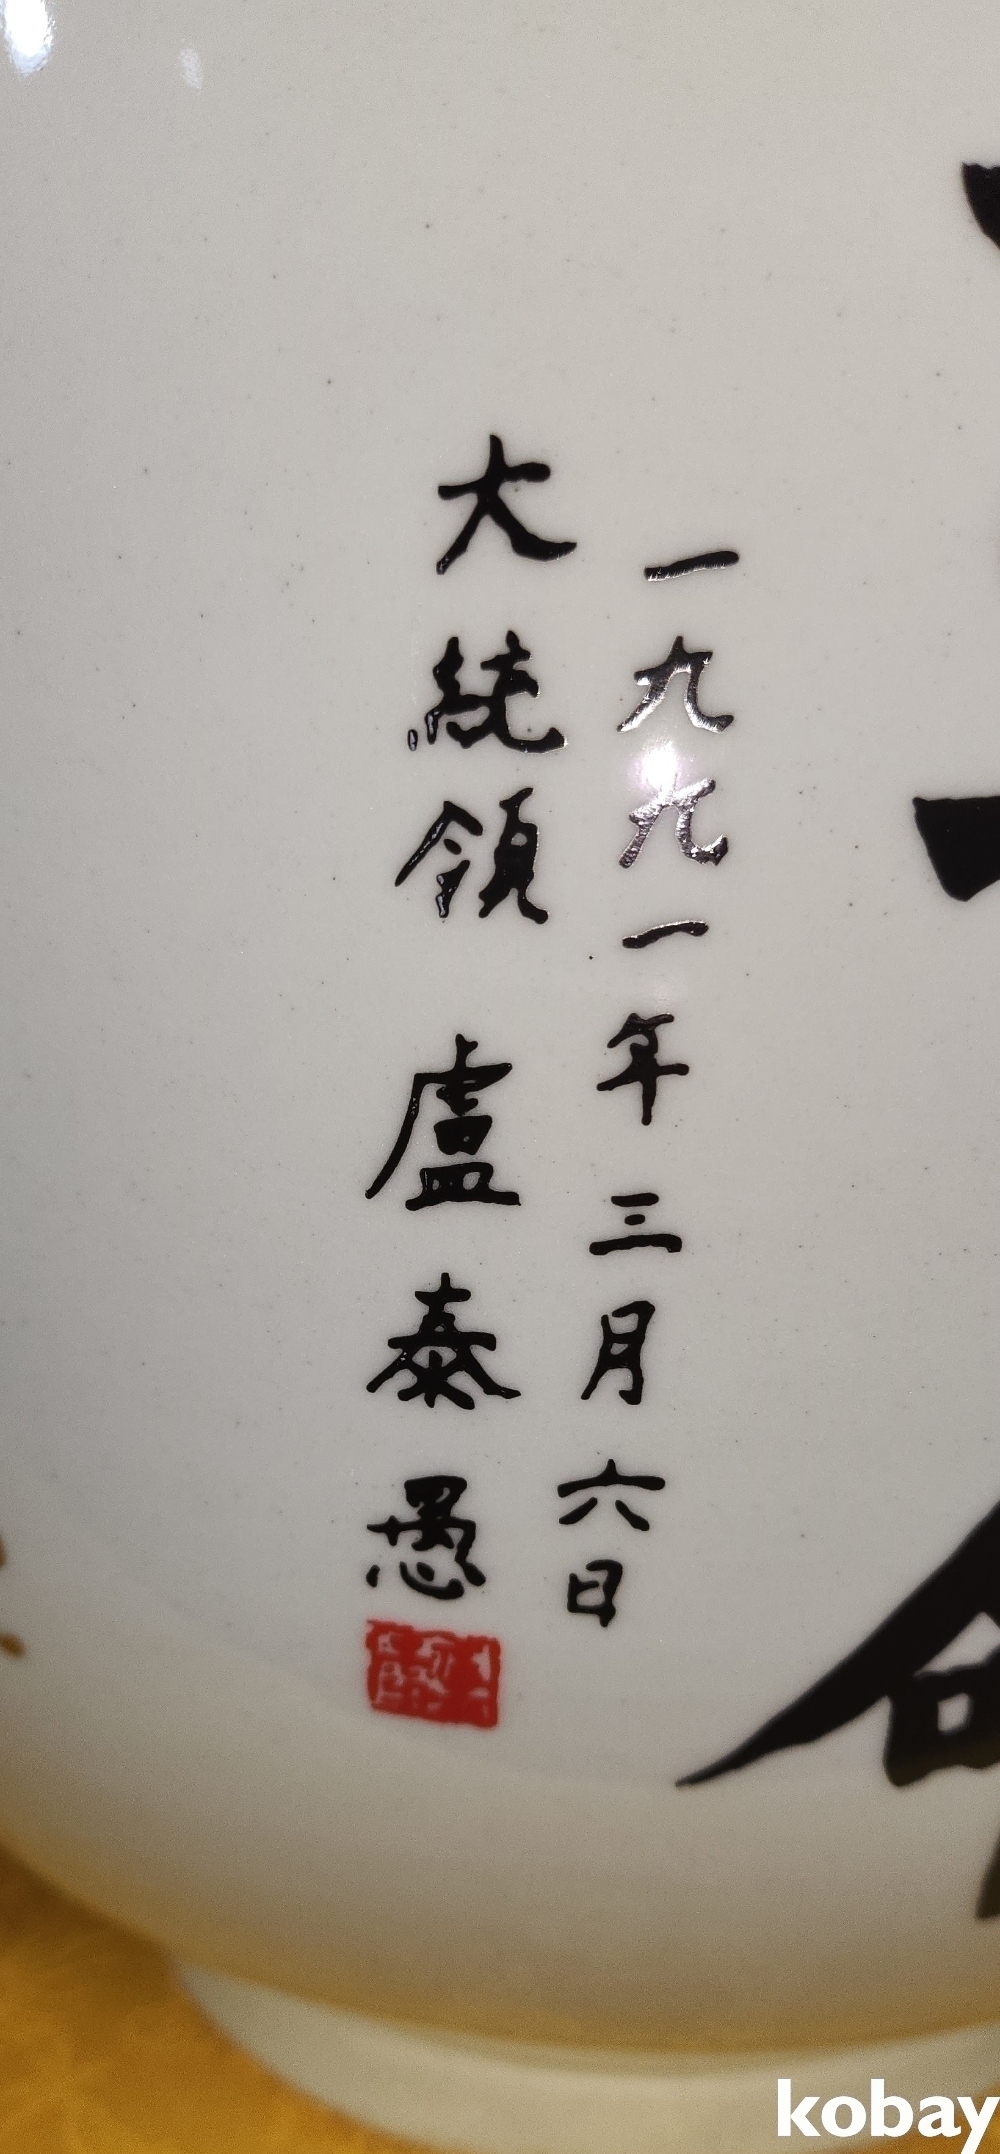 一九九一年三月六日
大統領 盧泰愚
kobay